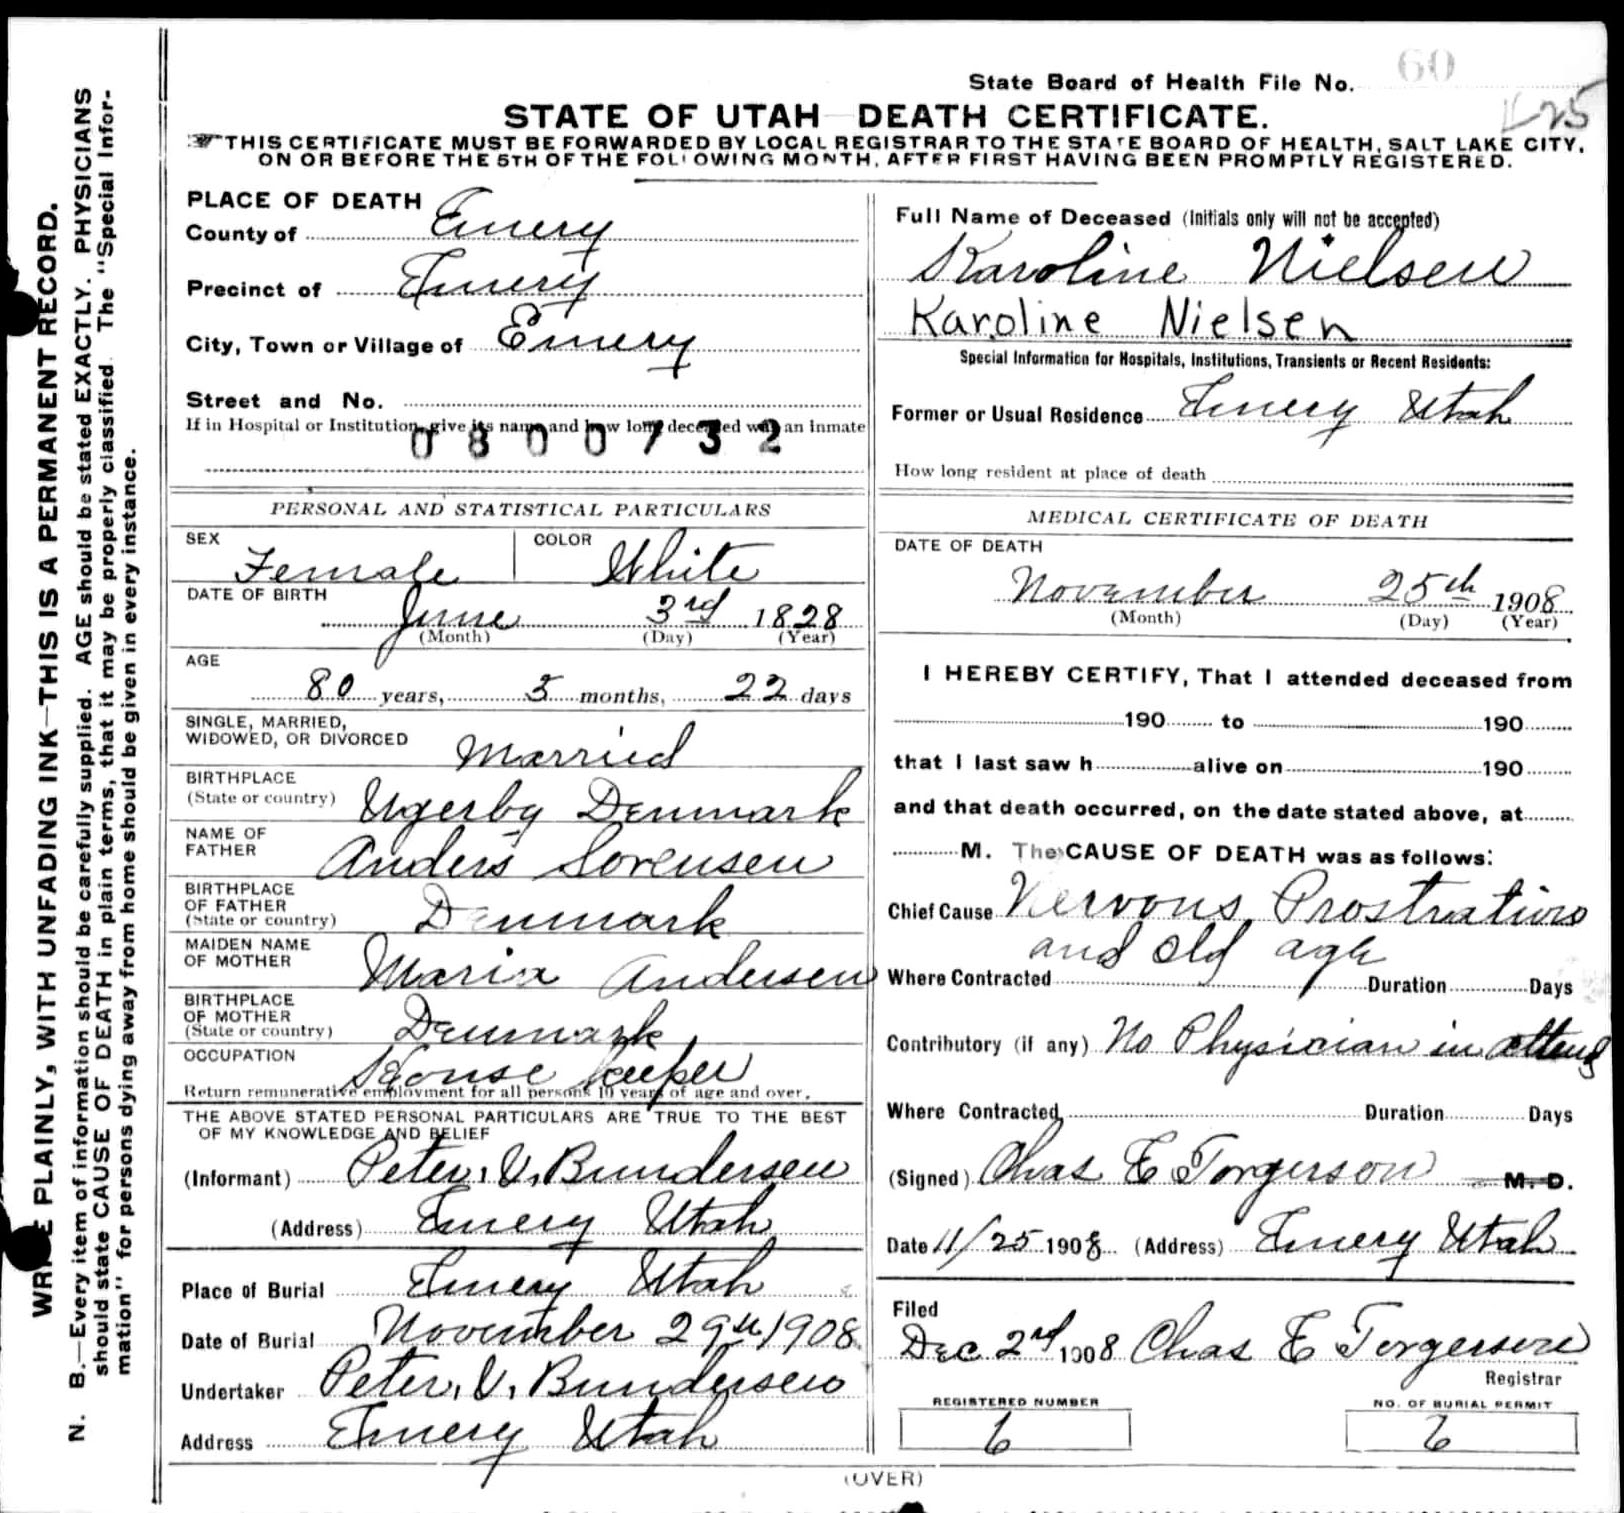 WRITE PLAINLY, WITH UNFADING INK—THIS IS A PERMANENT RECORD.
N. B.—Every item of information should be carefully supplied. AGE should be stated EXACTLY. PHYSICIANS
should state CAUSE OF DEATH in plain terms, that it may be properly classified. The "Special Infor-
mation" for persons dying away from home should be given in every instance.
State Board of Health File No. 60
25
STATE OF UTAH DEATH CERTIFICATE.
THIS CERTIFICATE MUST BE FORWARDED BY LOCAL REGISTRAR TO THE STATE BOARD OF HEALTH, SALT LAKE CITY,
ON OR BEFORE THE 5TH OF THE FOLLOWING MONTH, AFTER FIRST HAVING BEEN PROMPTLY REGISTERED.
PLACE OF DEATH
County of Emery
Precinct of Emery
City, Town or Village of Emery
Street and No.
If in Hospital or Institution, give its name and how long deceased was an inmate
0800732
PERSONAL AND STATISTICAL PARTICULARS
SEX Female COLOR White
DATE OF BIRTH
June 3rd 1828
(Month) (Day) (Year)
AGE
80 years, 5 months, 22 days
SINGLE, MARRIED,
WIDOWED, OR DIVORCED Married
BIRTHPLACE
(State or country) Ugerby Denmark
NAME OF
FATHER Anders Sorensen
BIRTHPLACE
OF FATHER
(State or country) Denmark
MAIDEN NAME
OF MOTHER Maria Andersen
BIRTHPLACE
OF MOTHER
(State or country) Denmark
OCCUPATION House keeper
Return remunerative employment for all persons 10 years of age and over.
THE ABOVE STATED PERSONAL PARTICULARS ARE TRUE TO THE BEST
OF MY KNOWLEDGE AND BELIEF
(Informant) Peter. V. Bundersen
(Address) Emery Utah
Place of Burial Emery Utah
Date of Burial November 29th 1908
Undertaker Peter. V. Bundersen
Address Emery Utah
Full Name of Deceased (Initials only will not be accepted)
Karoline Nielsen
Karoline Nielsen
Special Information for Hospitals, Institutions, Transients or Recent Residents:
Former or Usual Residence Emery Utah
How long resident at place of death
MEDICAL CERTIFICATE OF DEATH
DATE OF DEATH
November 25th 1908
(Month) (Day) (Year)
I HEREBY CERTIFY, That I attended deceased from
190 to 190
that I last saw h alive on 190
and that death occurred, on the date stated above, at
M. The CAUSE OF DEATH was as follows:
Chief Cause Nervous Prostration
and old age
Where Contracted Duration Days
Contributory (if any) No Physician in attend
Where Contracted Duration Days
(Signed) Chas E Torgerson M. D.
Date 11/25 1908 (Address) Emery Utah
Filed
Dec 2nd 1908 Chas E Torgerson
Registrar
REGISTERED NUMBER
6
NO. OF BURIAL PERMIT
6
(OVER)